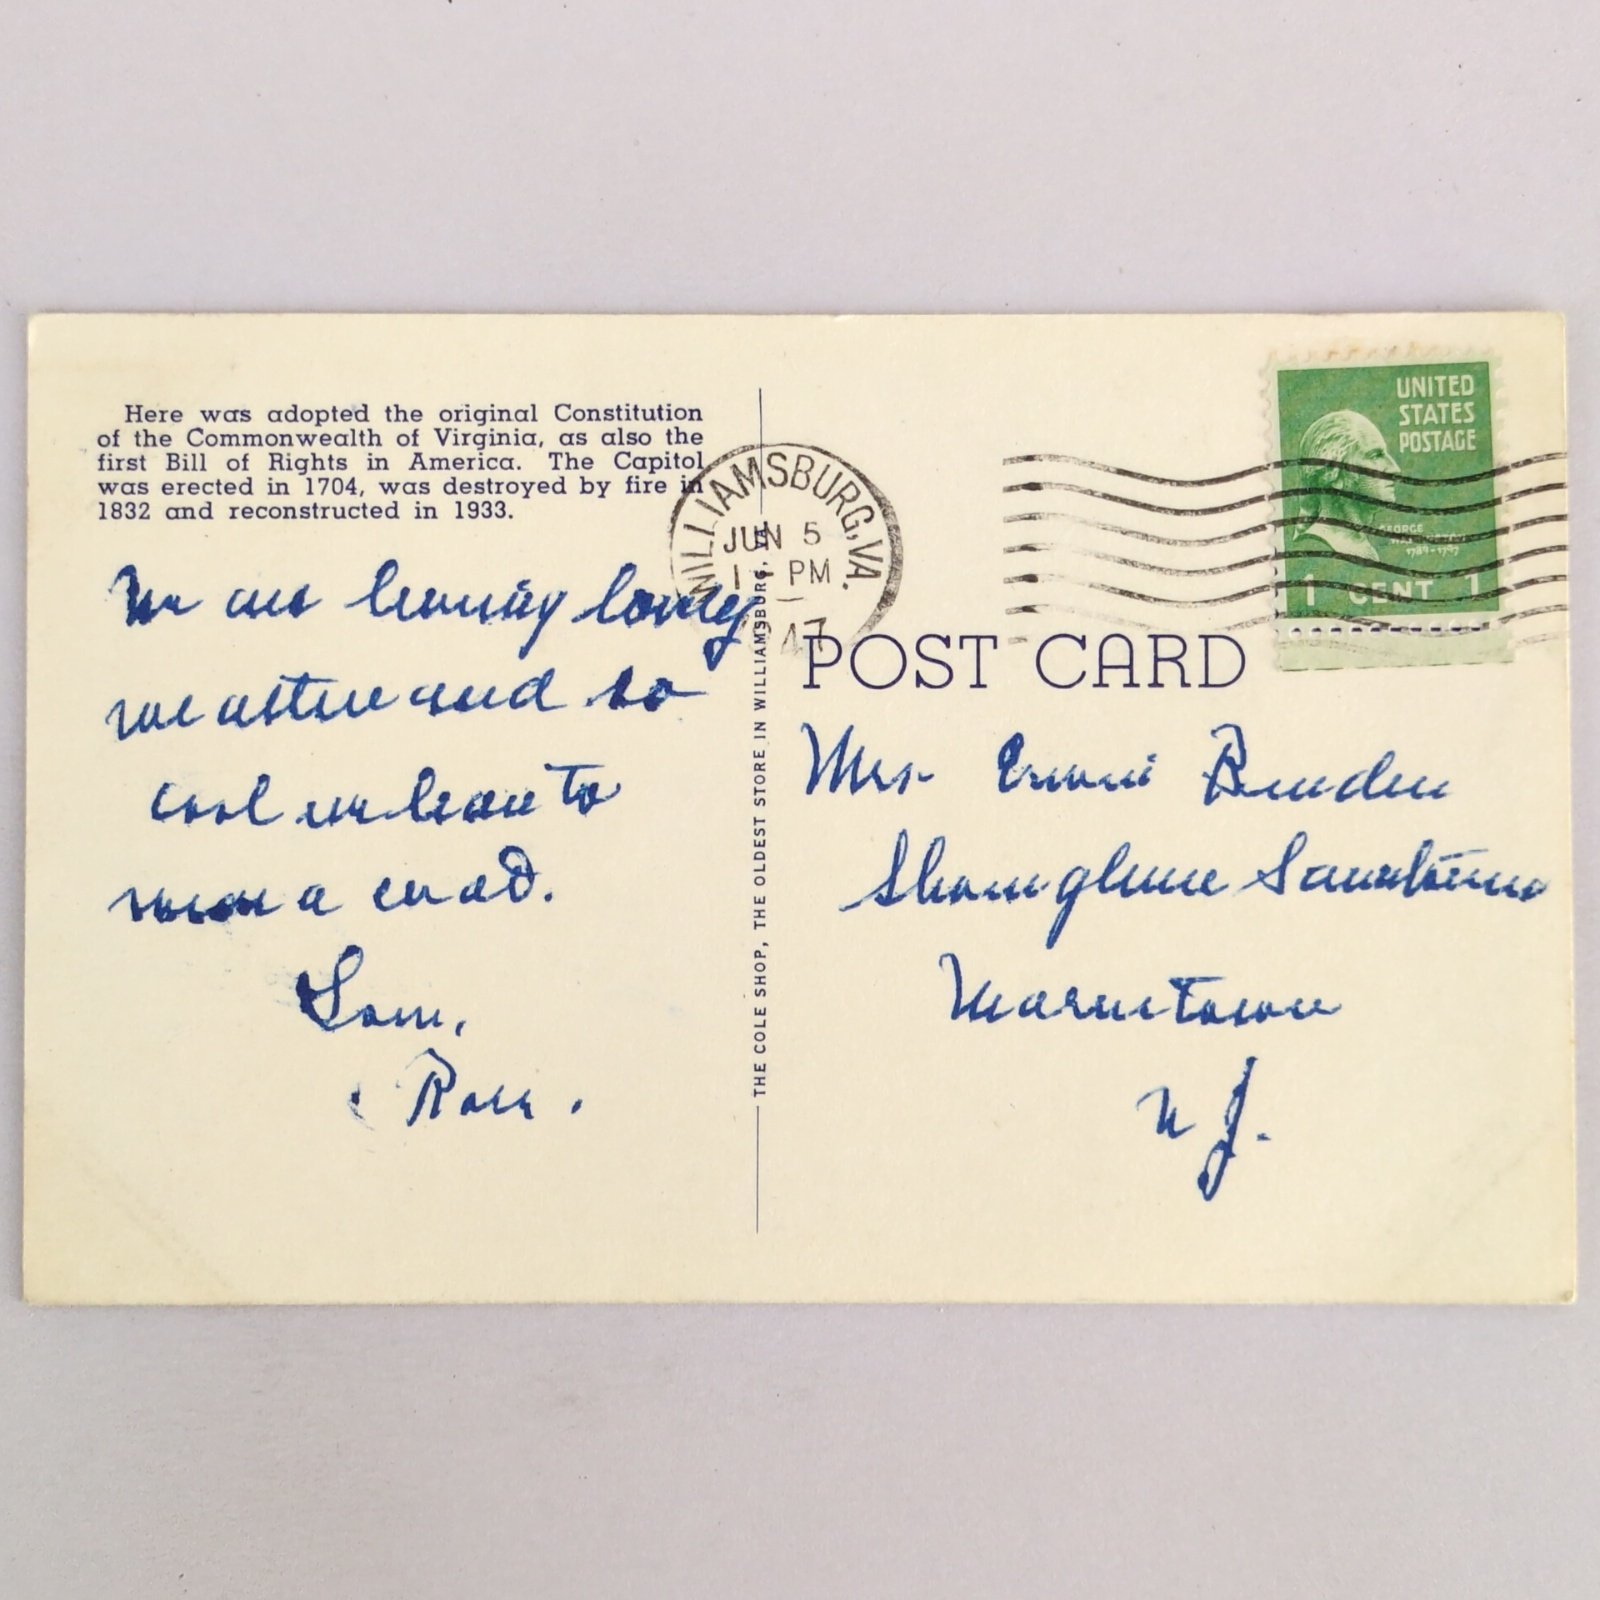 Here was adopted the original Constitution
of the Commonwealth of Virginia, as also the
first Bill of Rights in America. The Capitol
was erected in 1704, was destroyed by fire in
1832 and reconstructed in 1933.
We are having lovely
weather and so
cool we have to
wear a coat.
Love,
Rose.
THE COLE SHOP, THE OLDEST STORE IN WILLIAMSBURG, VA.
WILLIAMSBURG, VA.
JUN 5
1 - PM
47
UNITED
STATES
POSTAGE
GEORGE
WASHINGTON
1789-1797
1 CENT 1
POST CARD
Mrs.
N J.